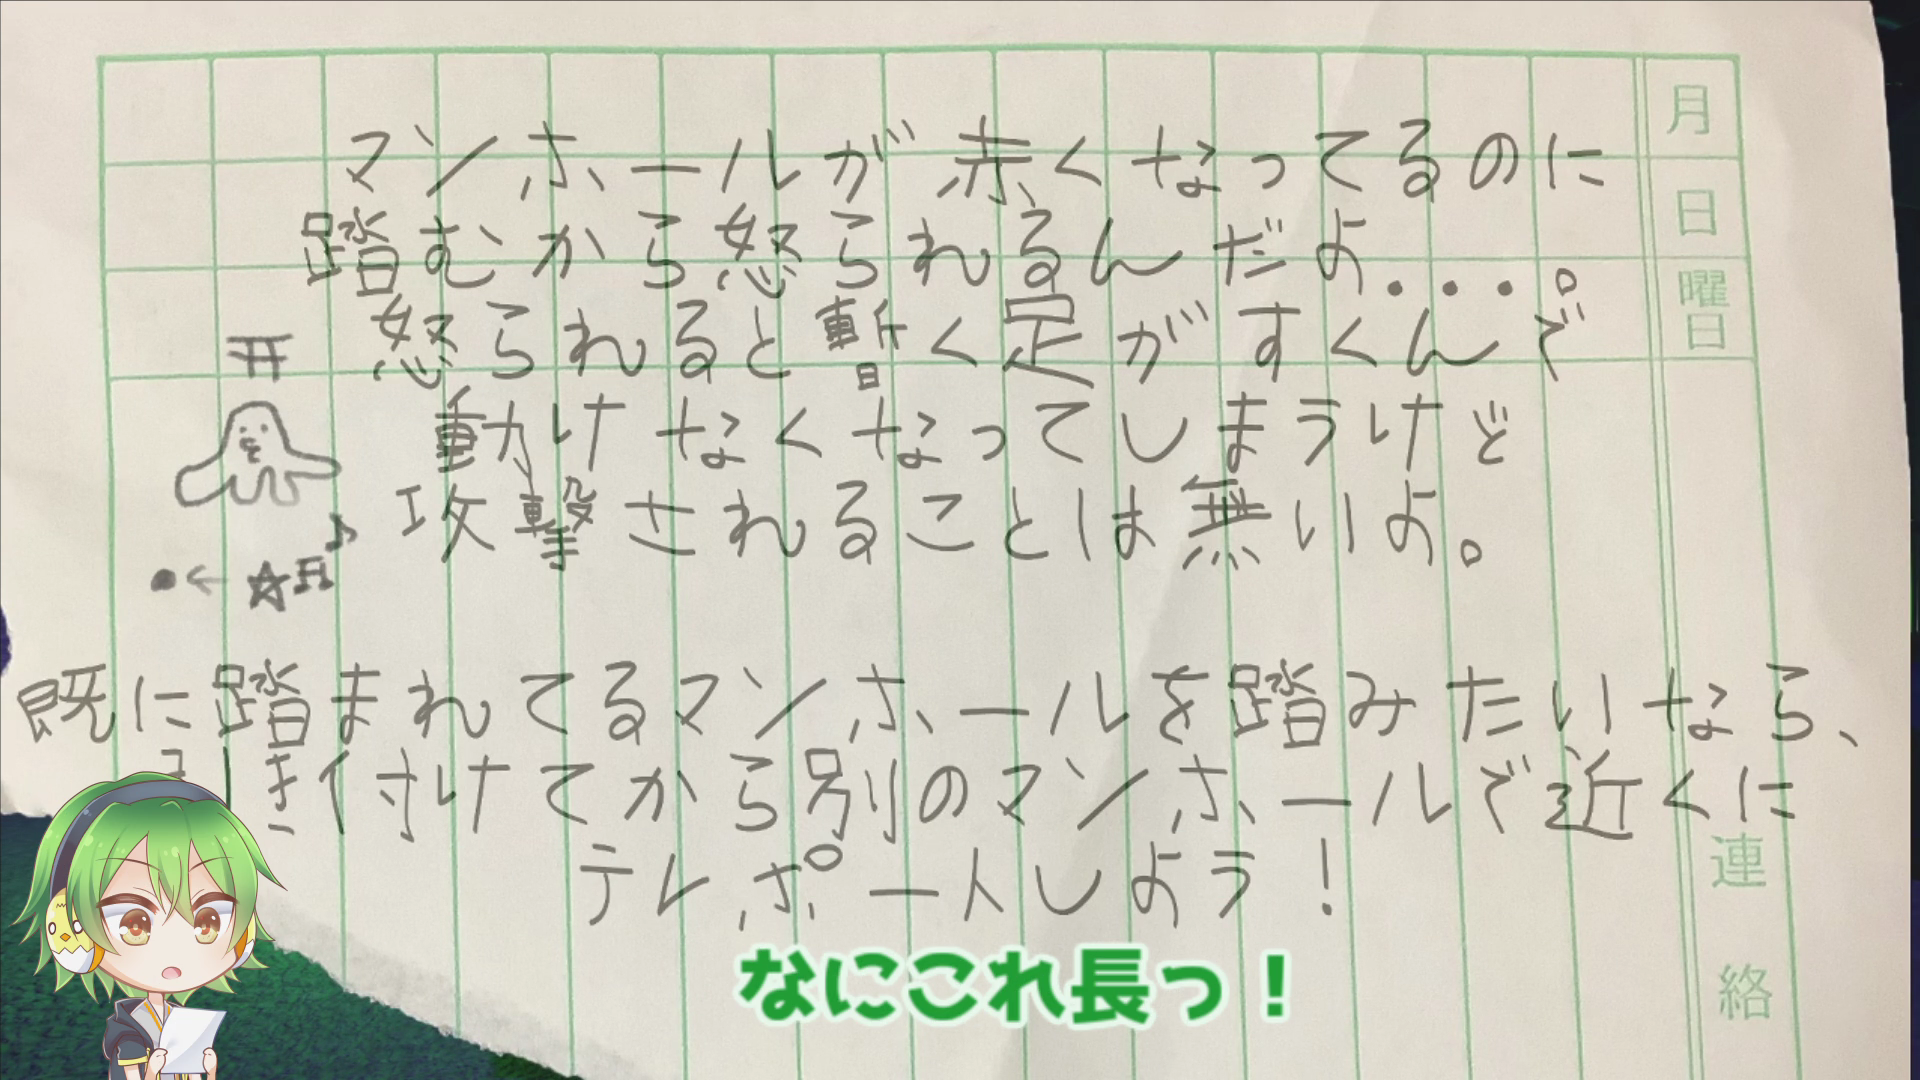 マンホールが赤くなってるのに
踏むから怒られるんだよ...。
怒られると暫く足がすくんで
動けなくなってしまうけど
攻撃されることは無いよ。
既に踏まれてるマンホールを踏みたいなら、
引き付けてから別のマンホールで近くに
テレポートしよう!
なにこれ長っ!
月
日
曜日
連
絡